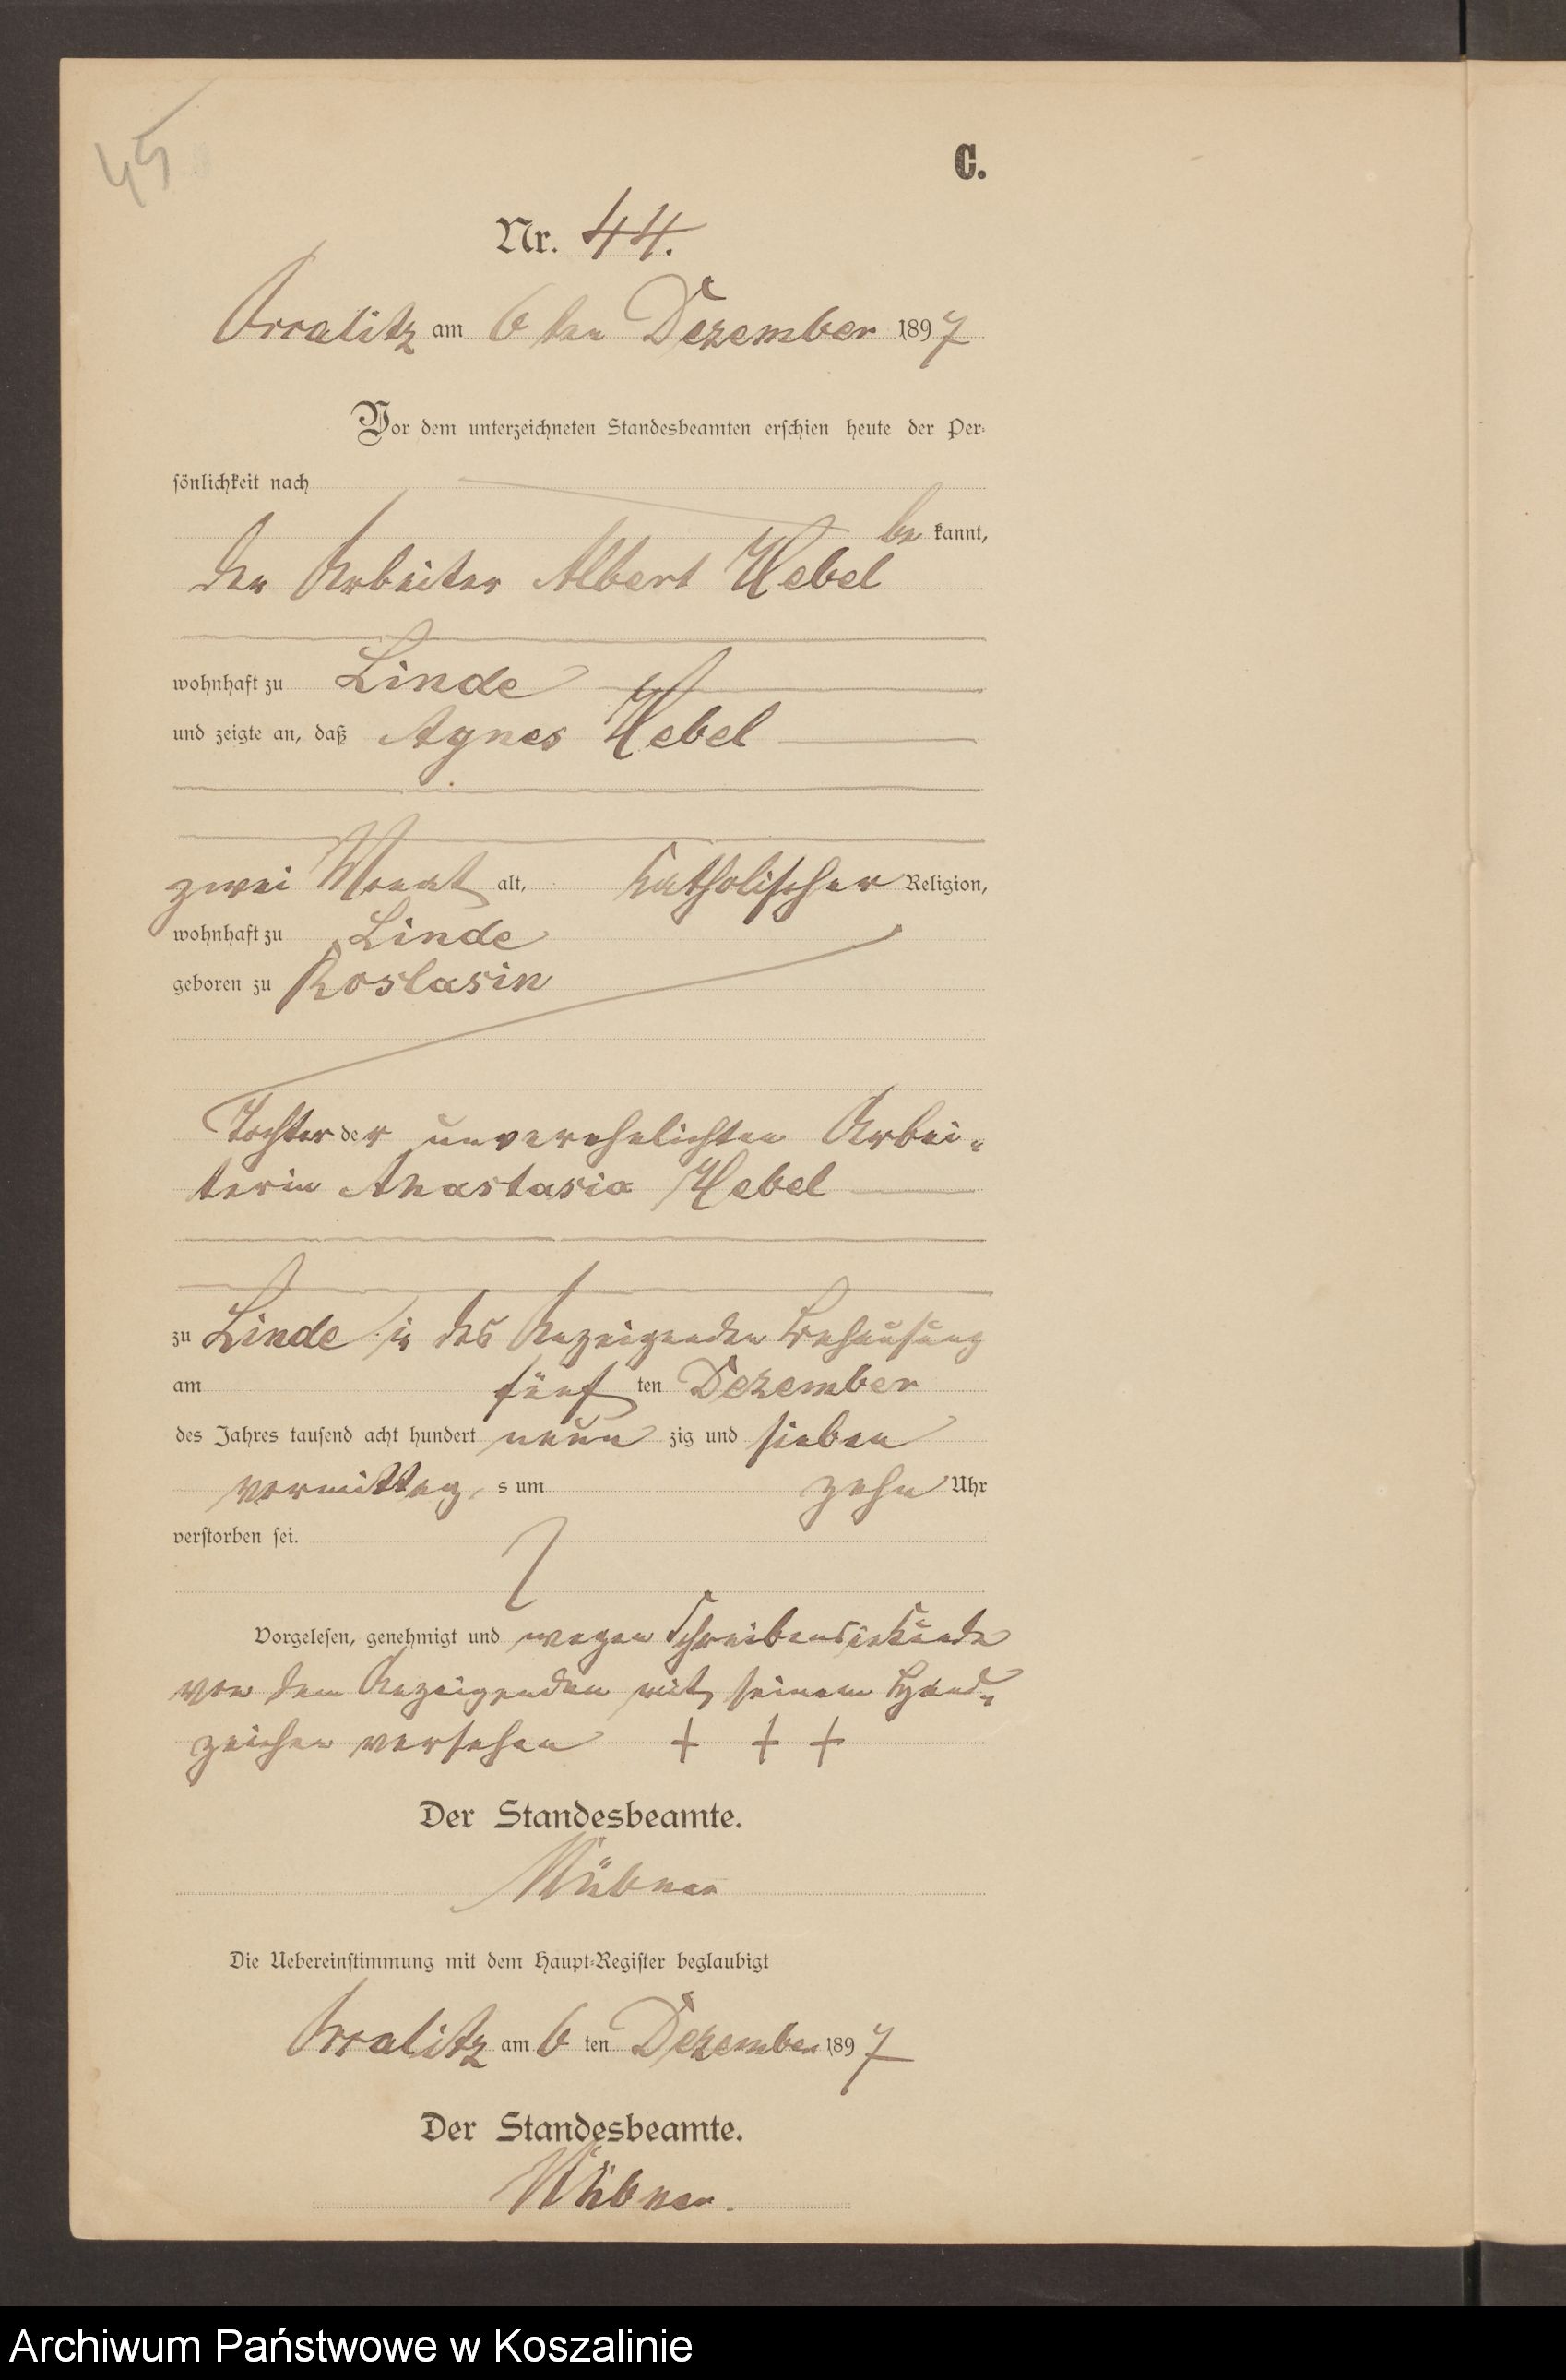 45
C.
Nr. 44.
am 6 ten Dezember 1897
Vor dem unterzeichneten Standesbeamten erschien heute der Per-
sönlichkeit nach
be kannt,
der Arbeiter Albert Hebel
wohnhaft zu Linde
und zeigte an, daß Agnes Hebel
zwei Monat alt, katholischer Religion,
wohnhaft zu Linde
geboren zu Roslasin
Tochter der unverehelichten Arbei-
terin Anastasia Hebel
zu Linde in des Anzeigenden Behausung
am fünf ten Dezember
des Jahres tausend acht hundert neun zig und sieben
vormittag s um zehn Uhr
verstorben sei.
Vorgelesen, genehmigt und wegen Schreibensunkunde
von dem Anzeigenden mit seinem Hand-
zeichen versehen + + +
Der Standesbeamte.
Die Uebereinstimmung mit dem Haupt-Register beglaubigt
am 6 ten Dezember 1897
Der Standesbeamte.
Archiwum Państwowe w Koszalinie